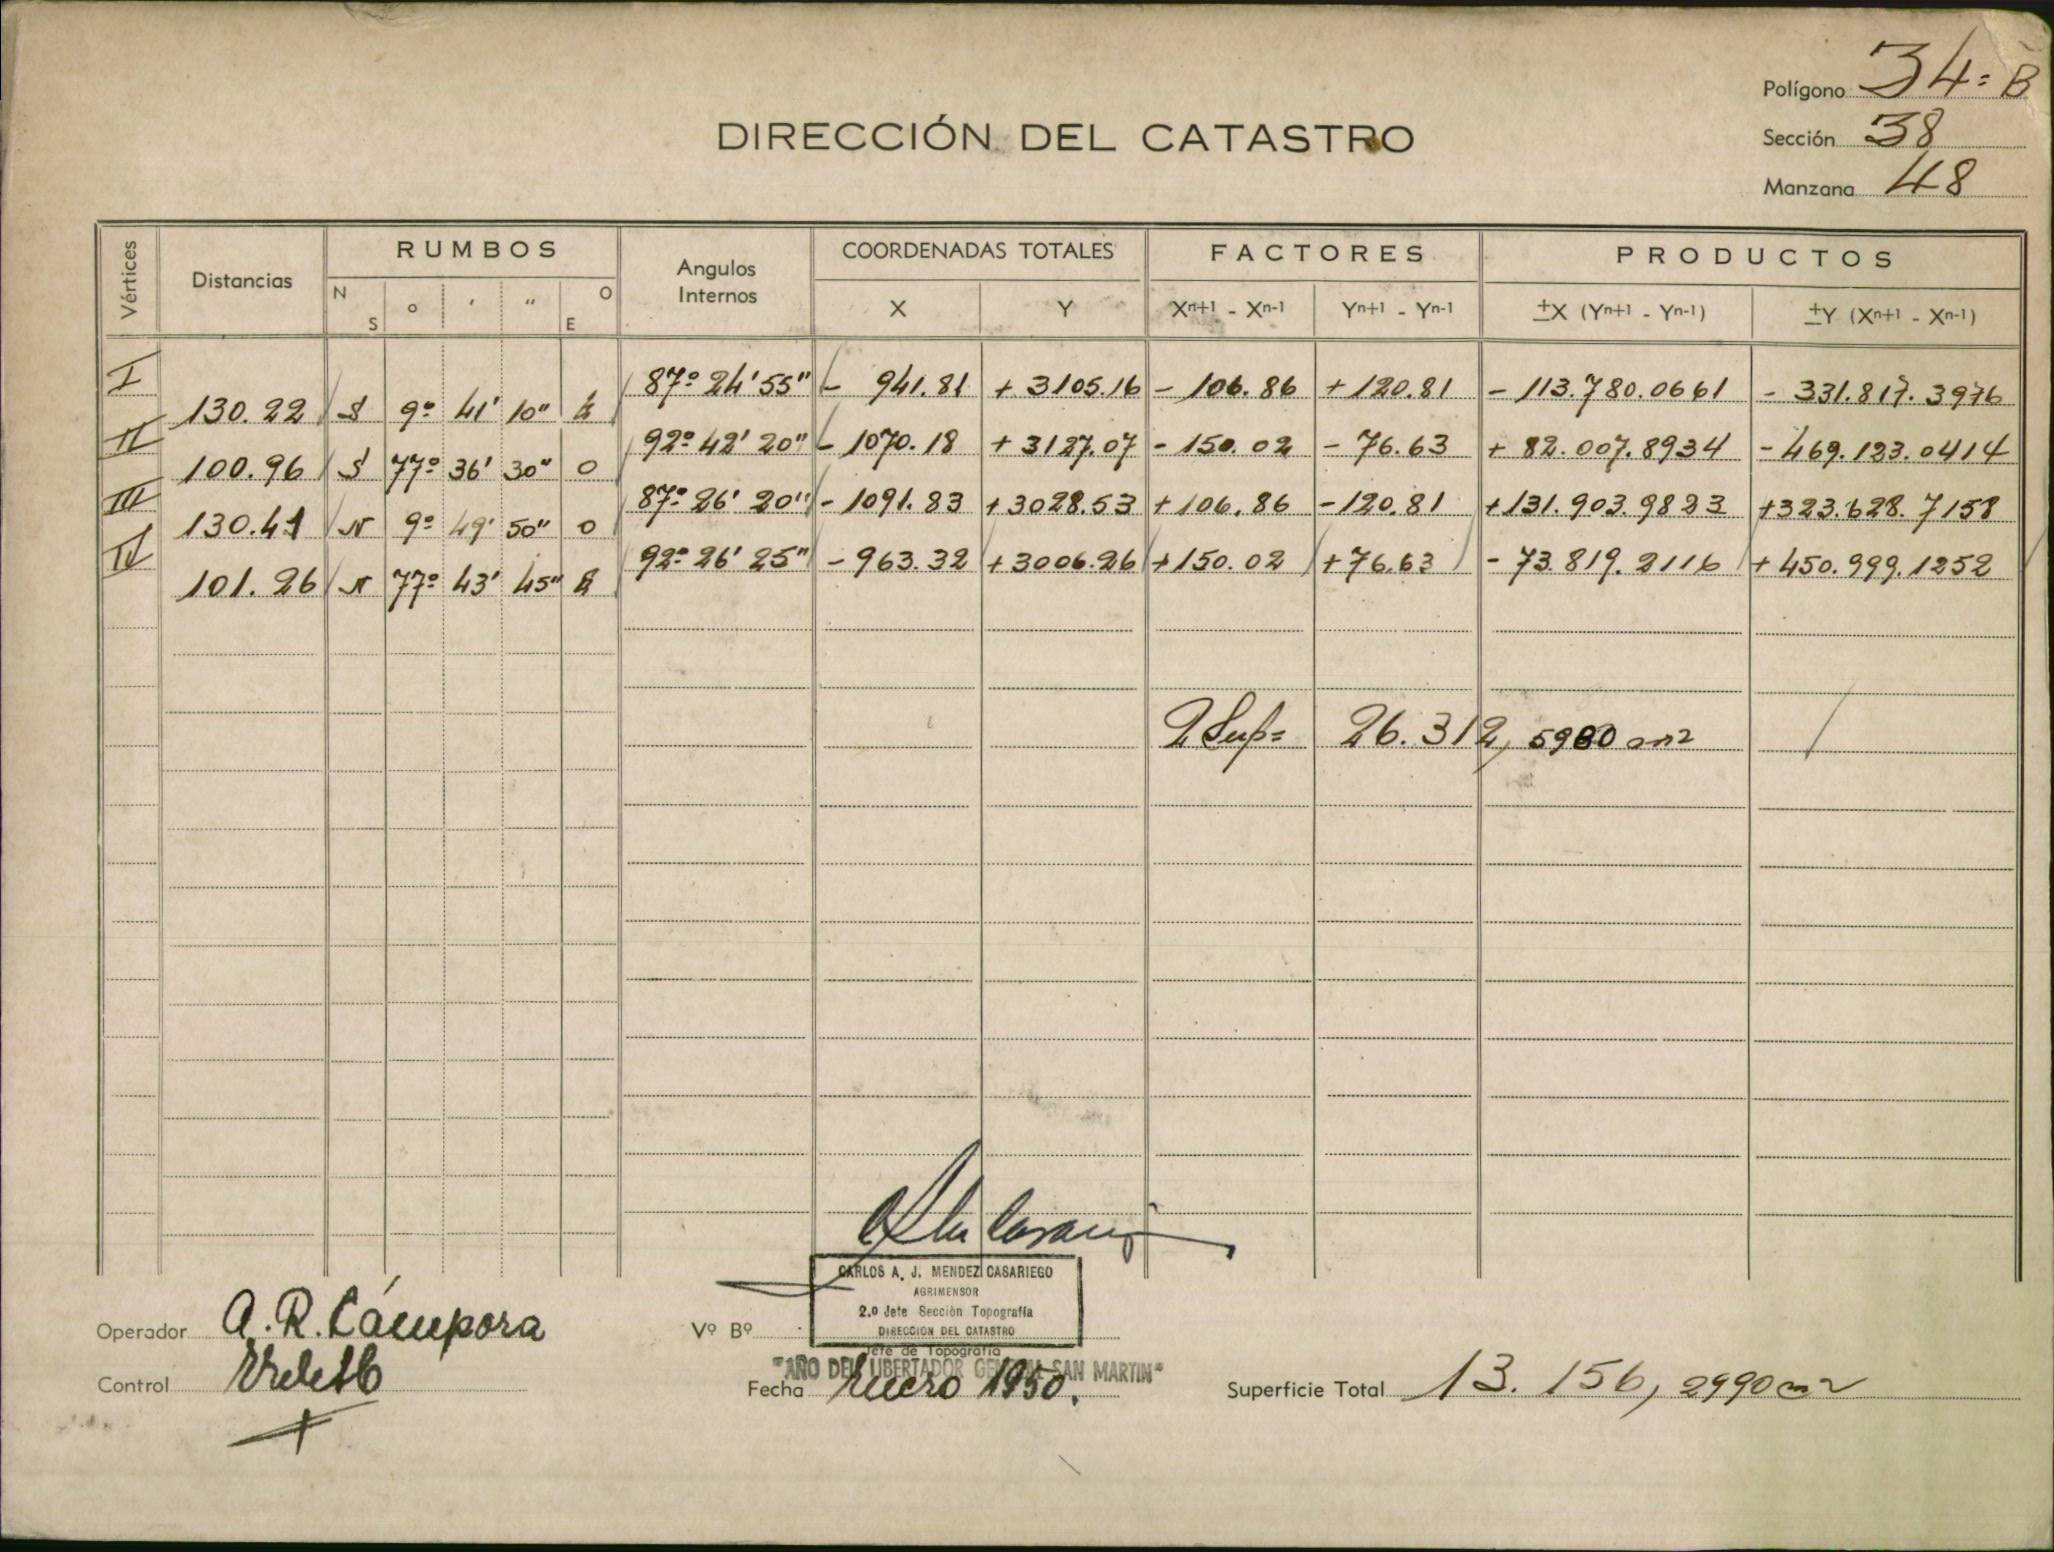 Polígono 34=B
DIRECCIÓN DEL CATASTRO
Sección 38
Manzana 48
Vértices Distancias RUMBOS Angulos Internos COORDENADAS TOTALES FACTORES PRODUCTOS
N S ° ' " O E X Y Xn+1 - Xn-1 Yn+1 - Yn-1 ±X (Yn+1 - Yn-1) ±Y (Xn+1 - Xn-1)
I 87° 24' 55" - 941.81 + 3105.16 - 106.86 + 120.81 - 113.780.0661 - 331.817.3976
130.22 S 9° 41' 10" E
II 92° 42' 20" - 1070.18 + 3127.07 - 150.02 - 76.63 + 82.007.8934 - 469.123.0414
100.96 S 77° 36' 30" O
III 87° 26' 20" - 1091.83 + 3028.53 + 106.86 - 120.81 + 131.903.9823 + 323.628.7158
130.41 N 9° 49' 50" O
IV 92° 26' 25" - 963.32 + 3006.26 + 150.02 + 76.63 - 73.819.2116 + 450.999.1252
101.26 N 77° 43' 45" E
2 Sup= 26.312, 5980 m2
CARLOS A. J. MENDEZ CASARIEGO
AGRIMENSOR
2.o Jefe Sección Topografía
DIRECCION DEL CATASTRO
Operador A. R. Cámpora
Vº Bº
Jefe de Topografía
"AÑO DEL LIBERTADOR GENERAL SAN MARTIN"
Control
Fecha Enero 1950.
Superficie Total 13.156, 2990 m2